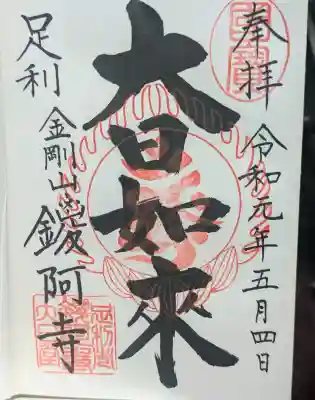 奉拝
令和元年五月四日
大日如來
足利
金剛山
鑁阿寺